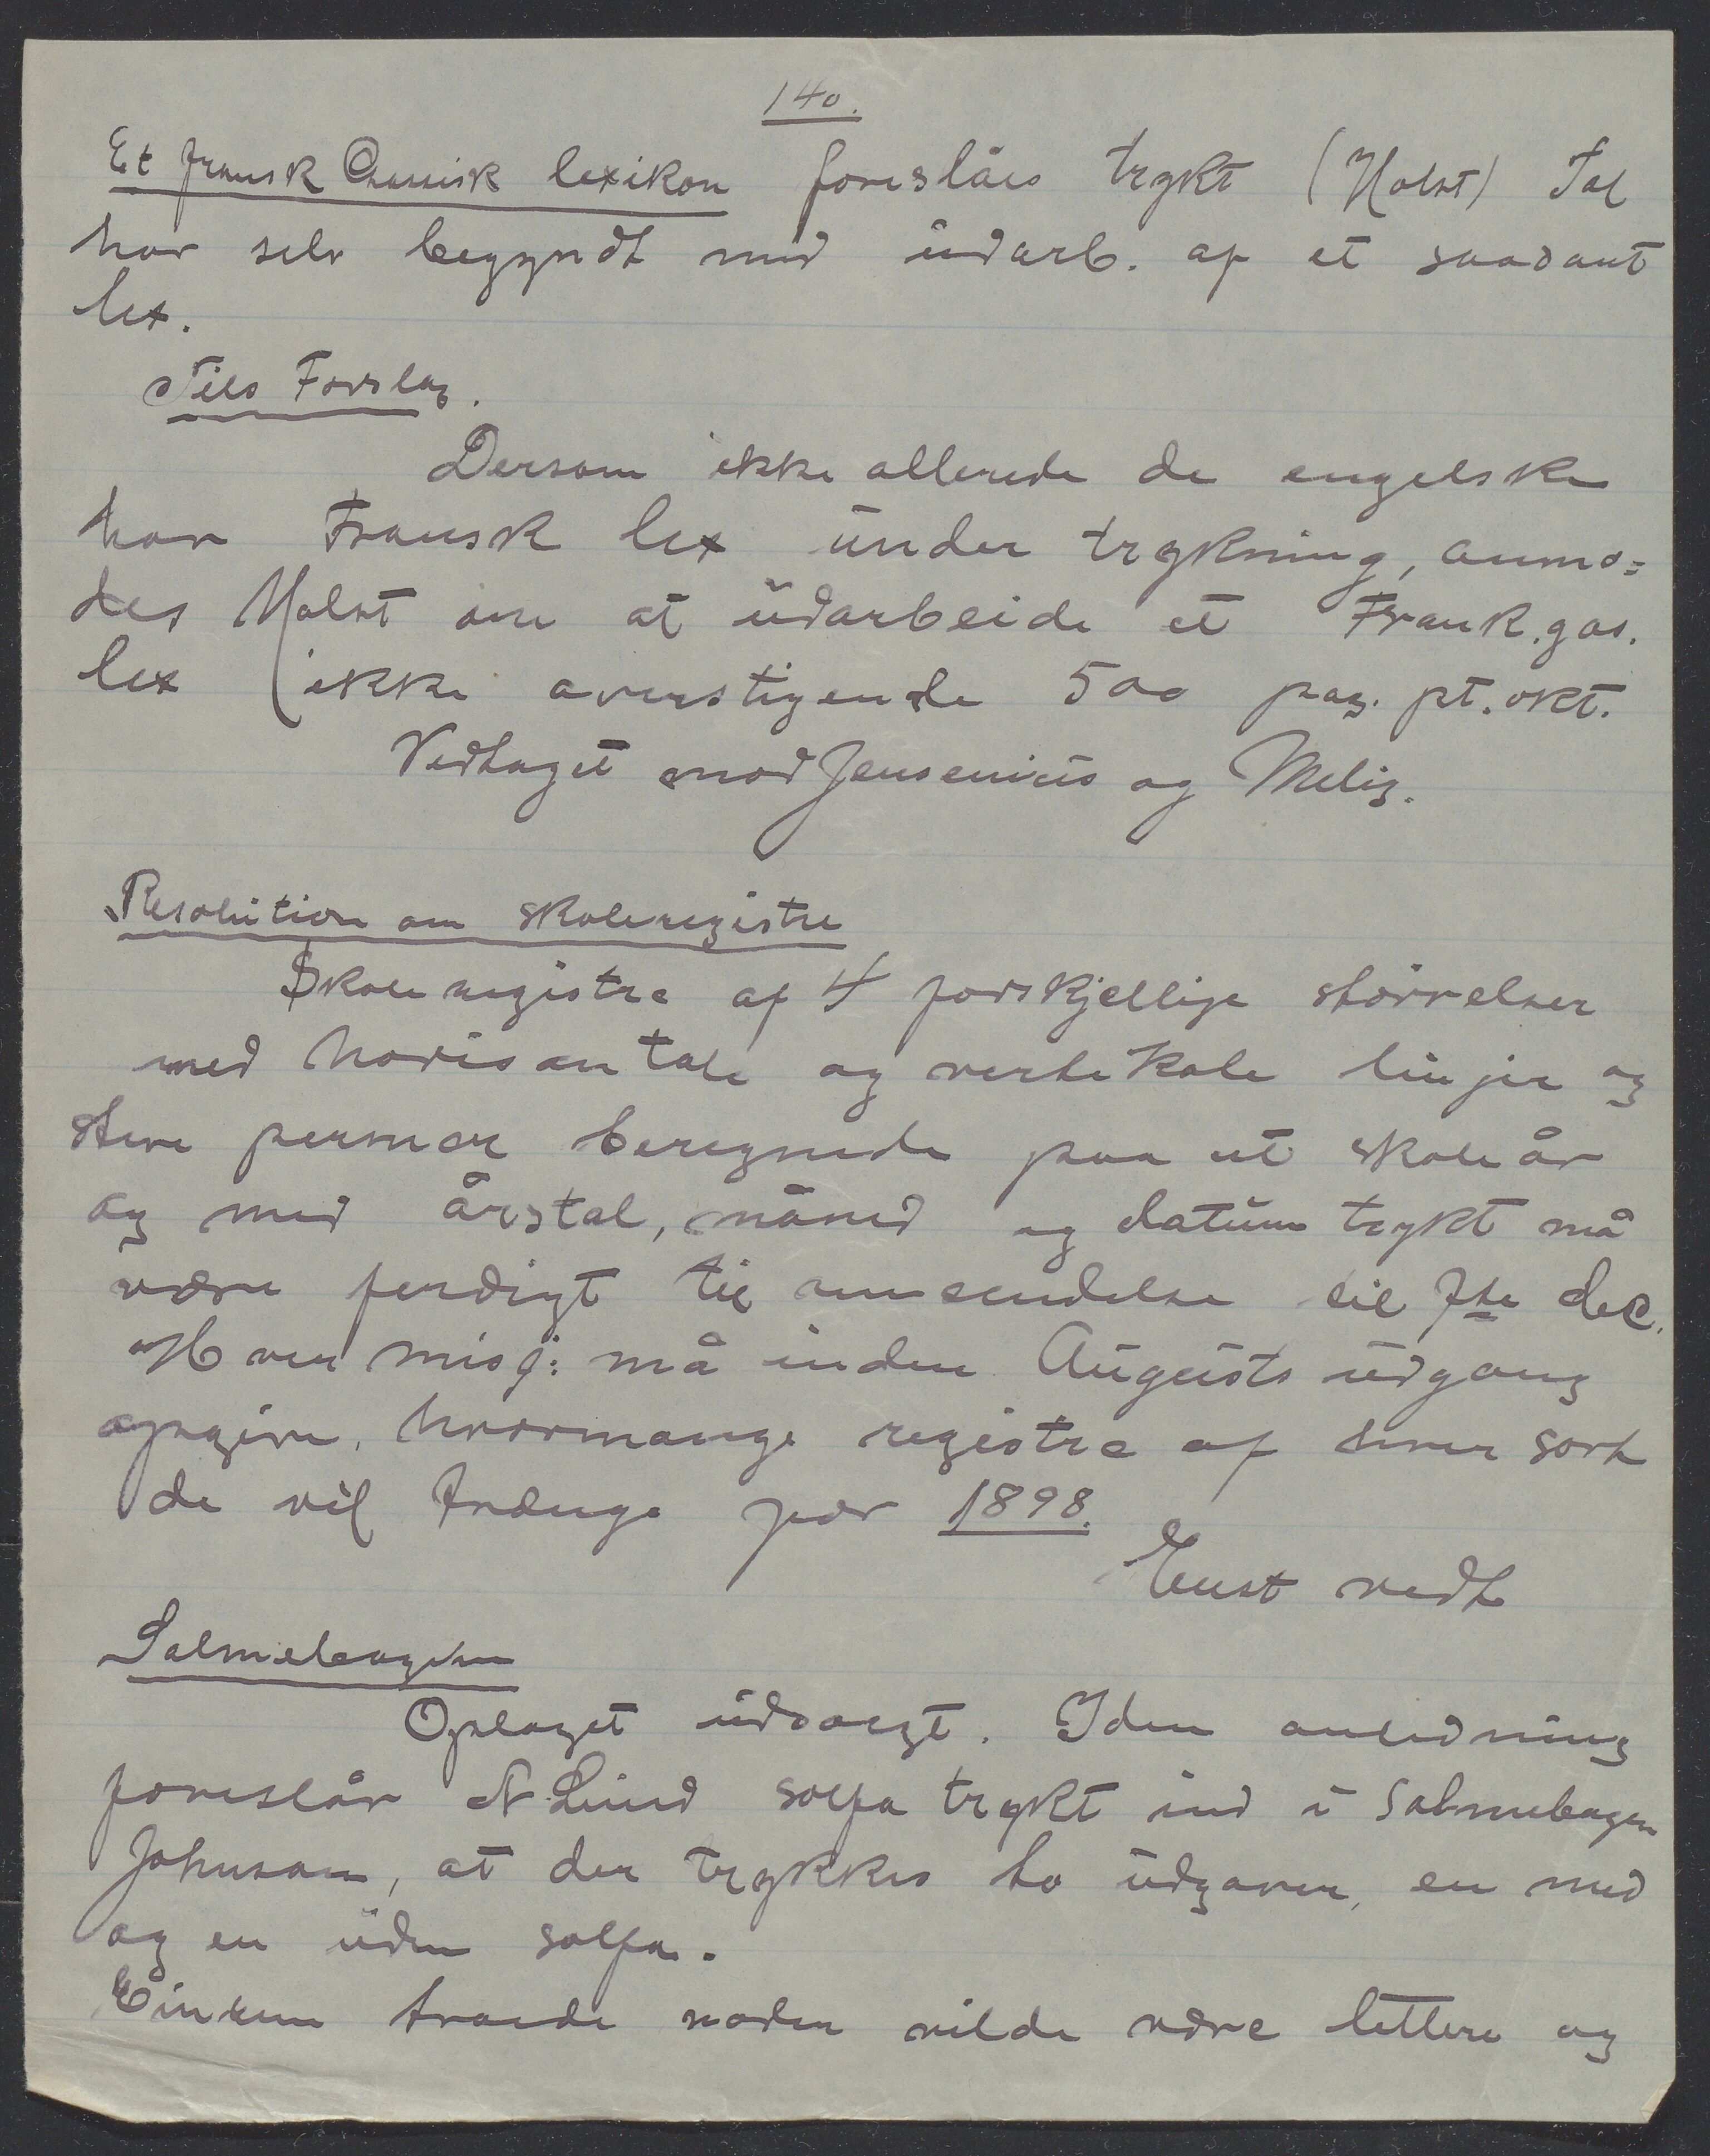 140.
Et fransk Gassisk lexikon foreslåes trykt (Holst) Tal
har selv begyndt med udarb. af et saadant
lex.
Nils Forslag.
Dersom ikke allerede de engelske
har Fransk lex under trykning, anmo=
des Holst om at udarbeide et Frank. gas.
lex (ikke overstigende 500 pag. pt. okt.
Vedtaget mod Jensenius og Meling.
Resolution om skoleregistre
Skoleregistre af 4 forskjellige størrelser
med horisontale og vertikale linjer og
stive permer beregnede paa et skoleår
og med årstal, måned og datum trykt må
være ferdigt til omsendelse til 1ste dec.
Hver misj: må inden Augusts udgang
opgive, hvormange registre af hver sort
de vil trænge for 1898.
Enst vedt
Salmebogen
Oplaget udsolgt. I den anledning
foreslår N. Lund solfa trykt ind i Salmebogen
Johnson, at der trykkes to udgaver, en med
og en uden solfa.
Einrem troede noder vilde være lettere og